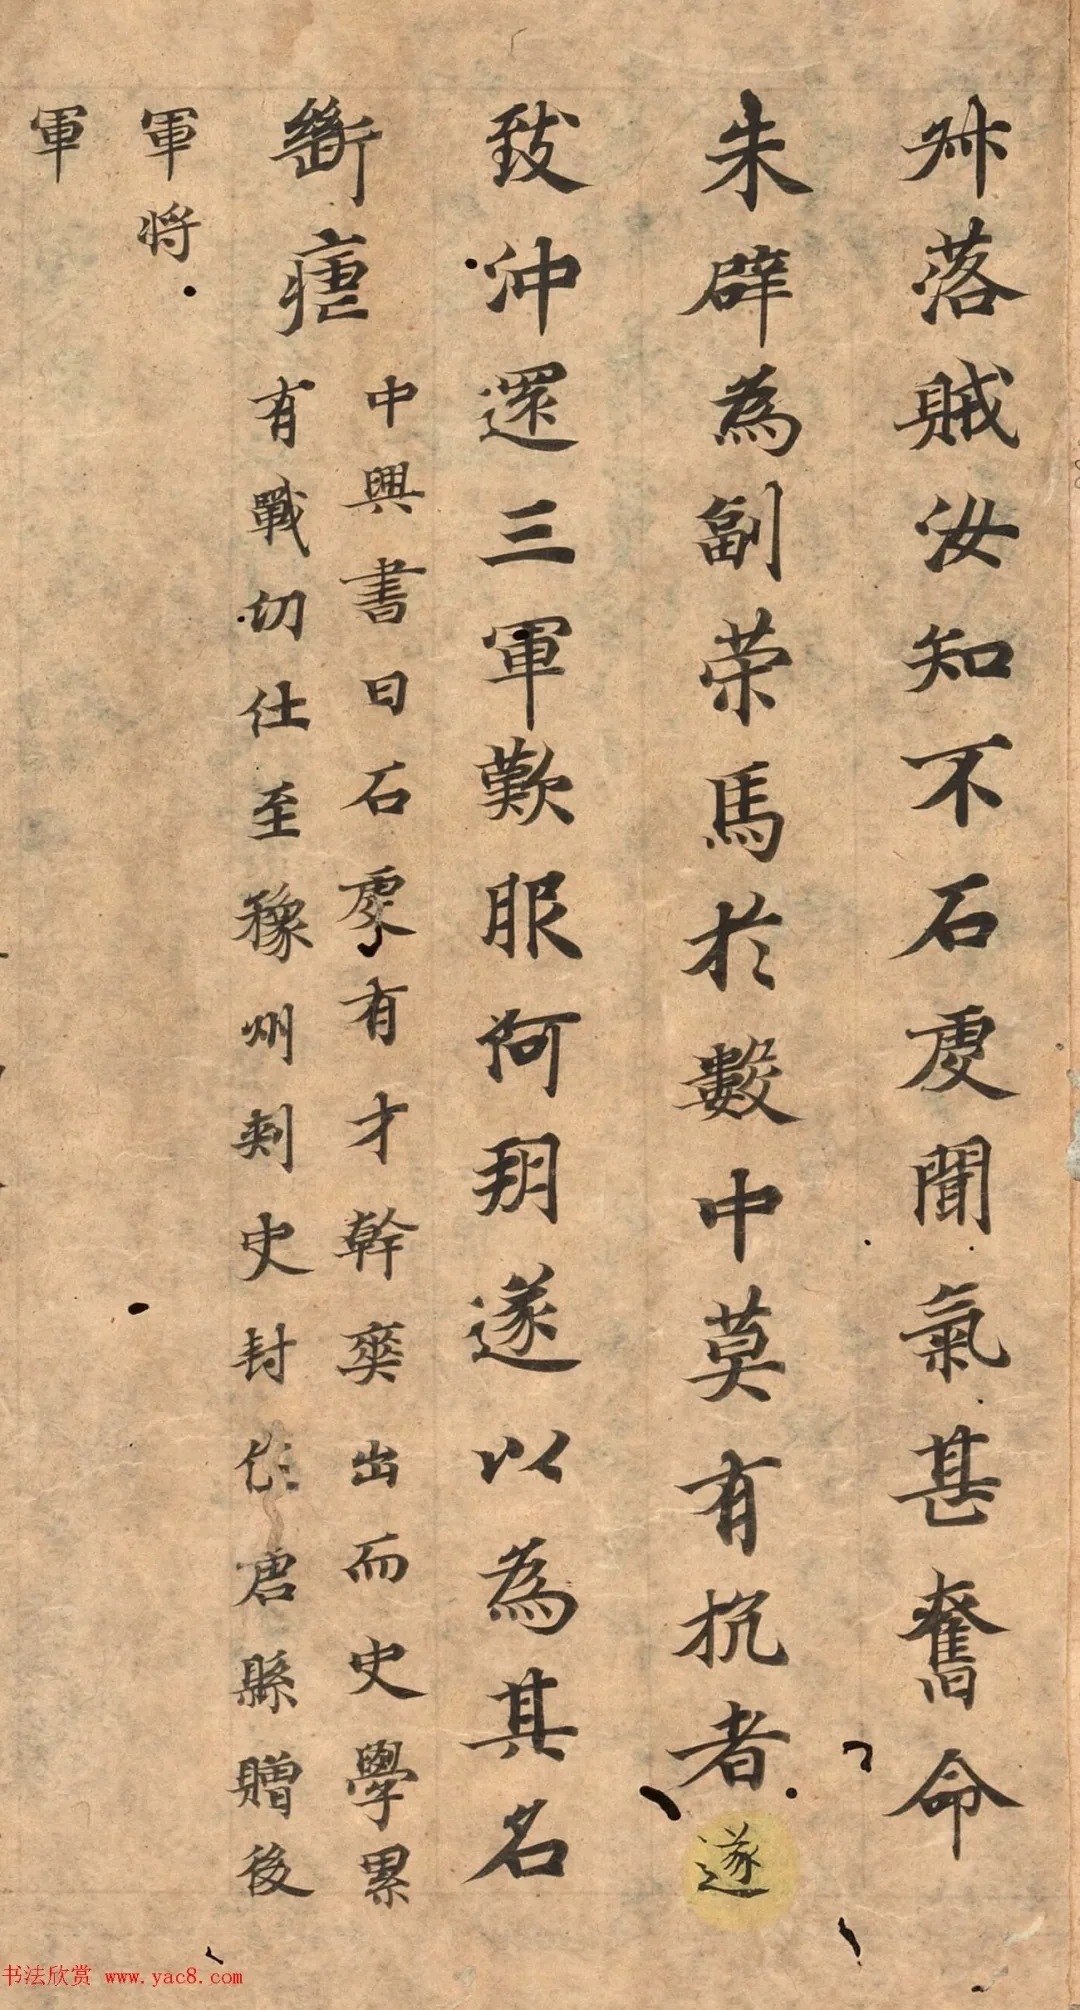 叔落賊汝知不石虔聞氣甚奮命
朱辟為副策馬於數中莫有抗者遂
致沖還三軍歎服河朔遂以為其名
斷瘧
中興書曰石虔有才幹奕出而史學累
有戰切仕至豫州刾史封作唐縣贈後
軍将
軍
书法欣赏 www.yac8.com